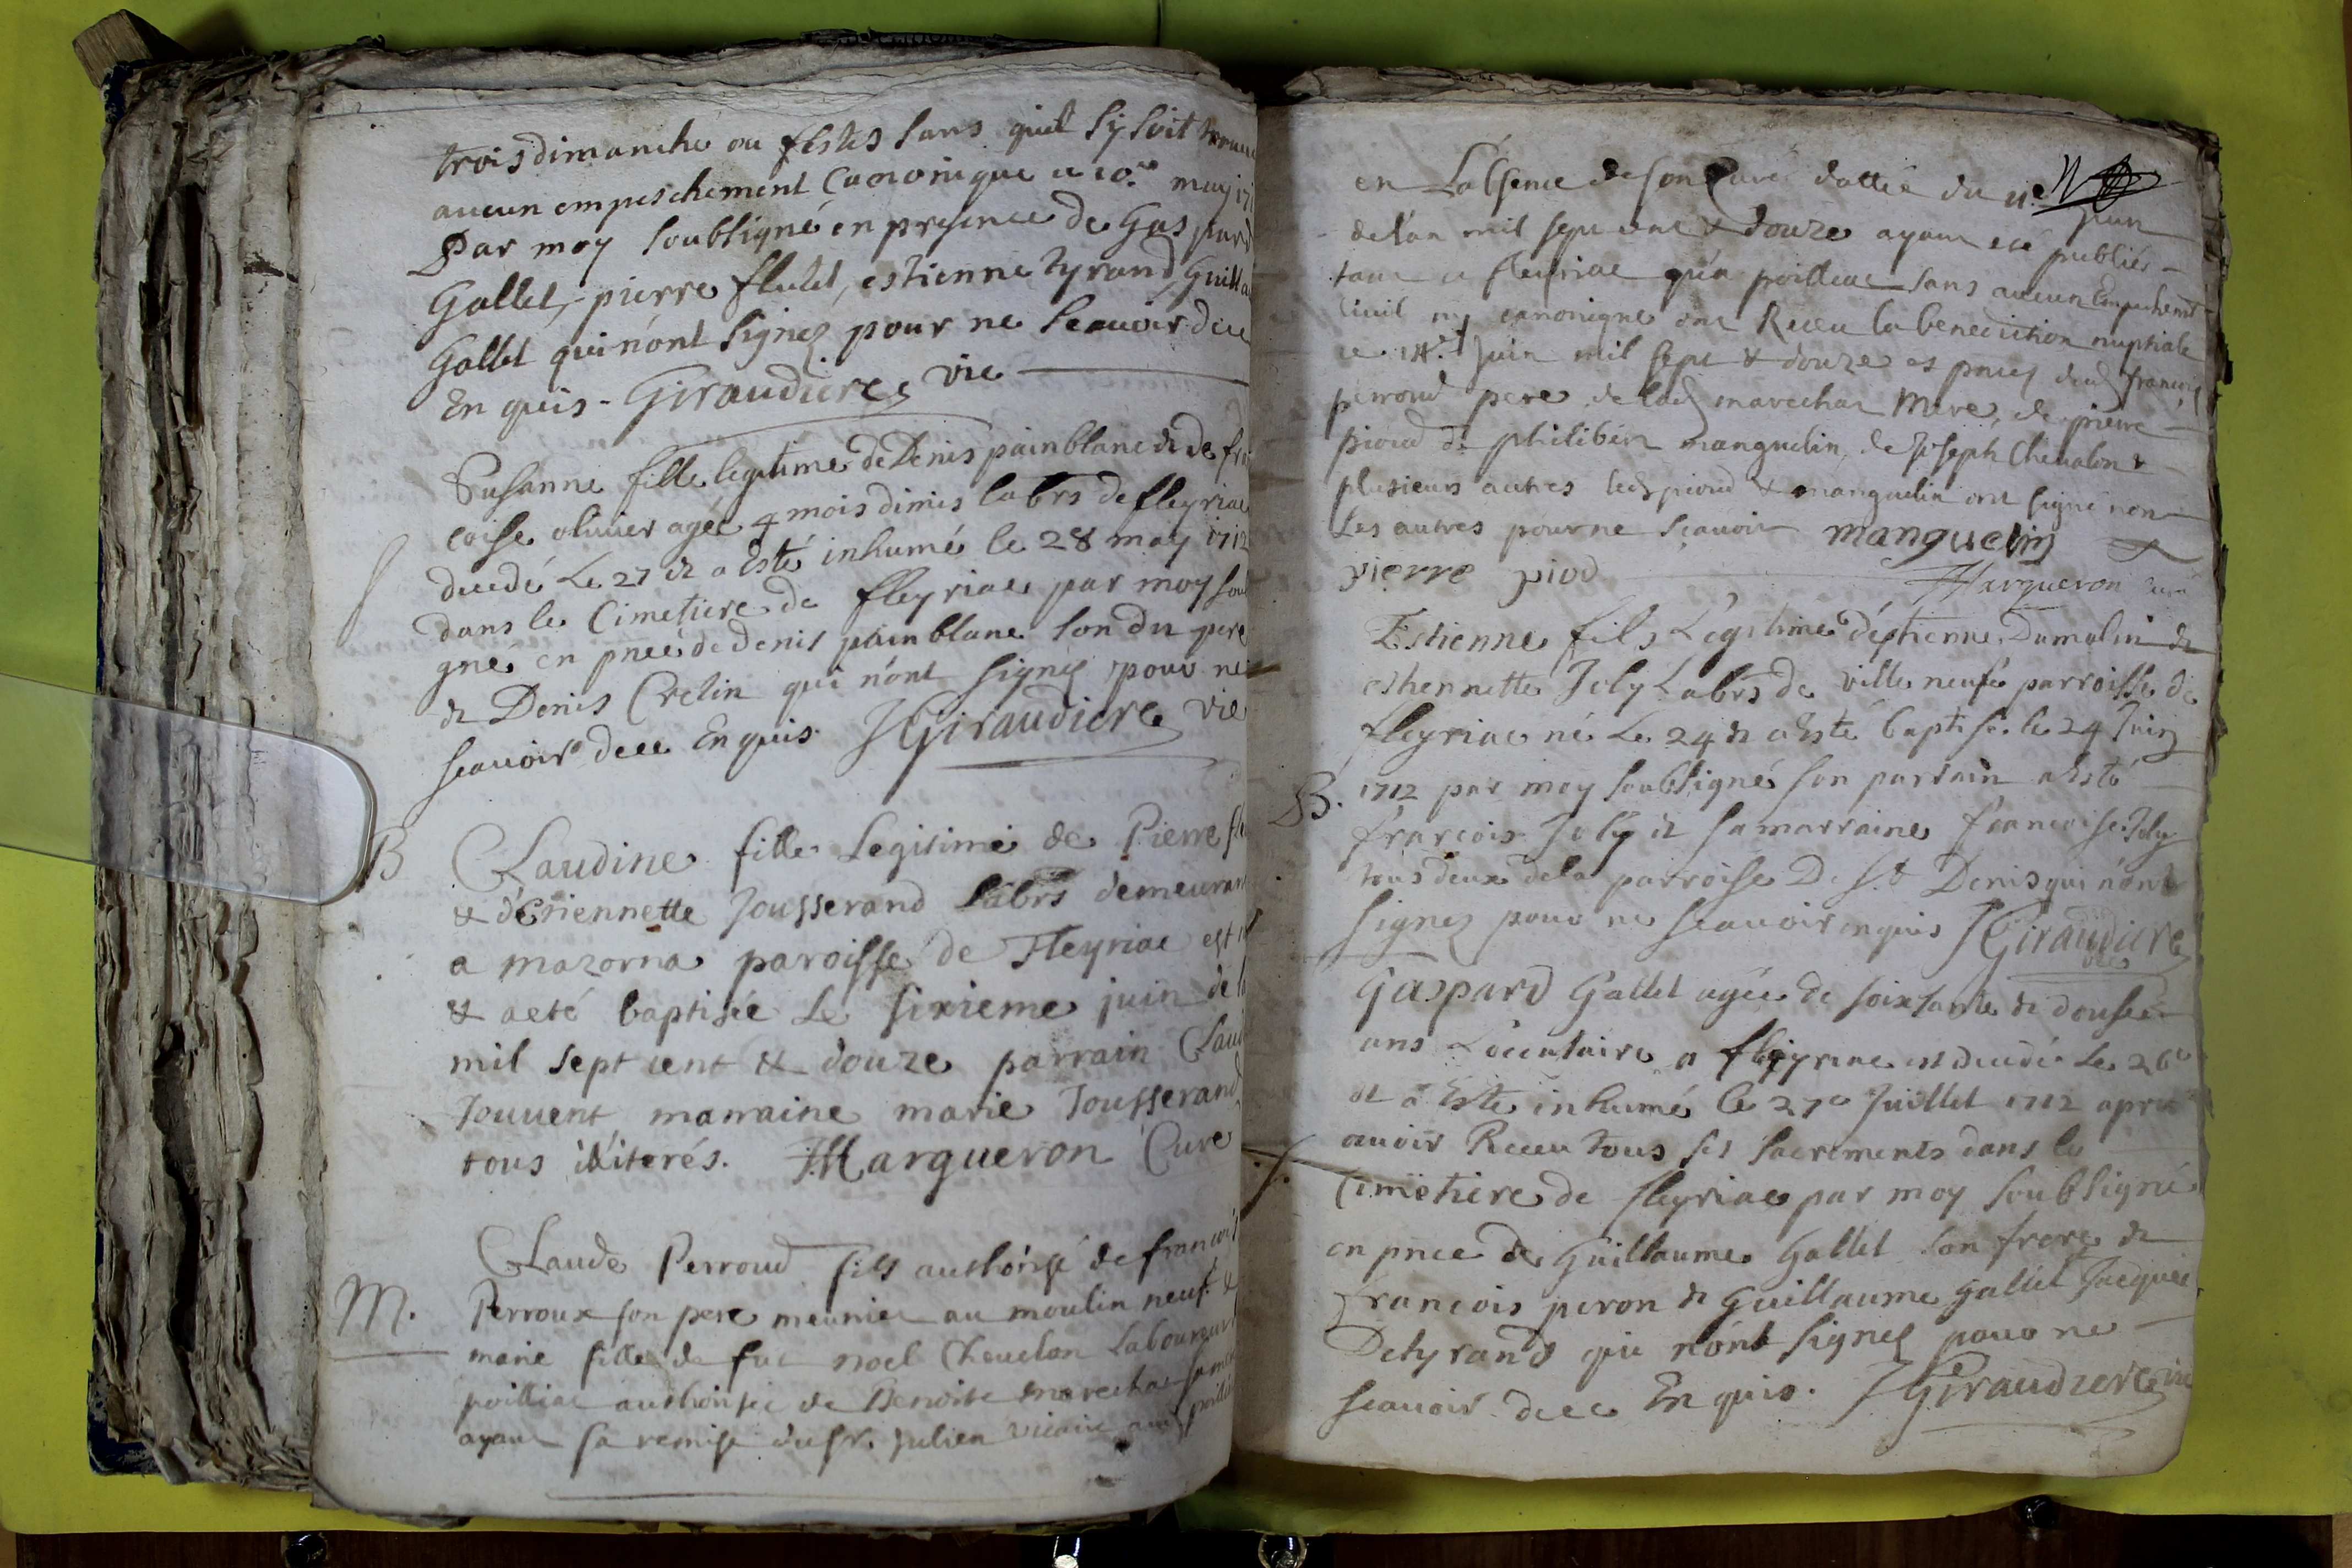 trois dimanche ou festes sans quil sy soit trouu
aucun empeschement Canonique ce 10.me may 17
Par moy soubsigné en presence de Gaspard
Gallet, pierre flutet, estienne tyrand, Guilla
Gallet qui nont signez pour ne scauoir dece
En quis - Giraudiere vic
Susanne fille legitime de Denis painblanc et de fran
coise oliuier agée 4 mois dimis labrs de fleyriac
decedé Le 27 et a Esté inhumé le 28 may 1712
dans le Cimetiere de fleyriac par moy soub
gné en pnce de Denis painblanc son du pere
et Denis Crelin qui nont signés pour ne
scauoir dece Enquis JGiraudiere vic
B
Claudine fille Legitime de Pierre flu
& d'Etiennette Jousserand labrs demeurant
a mazorna paroisse de Fleyriac est n
& aeté baptisée Le sixieme juin de l
mil sept cent & douze parrain Claud
Jouuent marraine marie Jousserand
tous illiterés. JMargueron Curé
M.
Claude Perroud fils authorisé de francois
Perroux son pere meunier au moulin neuf &
marie fille de fue noel Cheuelon Laboureur
poilliac authorisée de Benoite marechat sa mere
ayant sa remise du sr. Julien vicaire aud
en Labsence de son Curé dattée du 11e Juin
de lan mil sept cent & douze ayant eté publiés
tant a fleyriac qua poilliac sans aucun Empechemt
Ciuil ny canonique ont Receu la benediction nuptiale
ce 14e Juin mil sept & douze es pnces dud francois
perroud pere de lad marechat Mere, de pierre
pioud de philibert manguelin, de Joseph Cheualon &
plusieurs autres led pioud & manguelin ont signé non
Les autres pour ne sçauoir manguelin
pierre piod
JMargueron curé
Estienne fils Legitime d'estienne Dumolin et
esthennette Joly Labrs de ville neufe parroisse de
fleyriac né Le 24 et a Esté baptisé le 24 Juin
B. 1712 par moy soubsigné son parrain a Esté
francois Joly et sa marraine francoise Joly
tous deux de la parroisse De St Denis qui nont
signez pour ne scauoir enquis JGiraudiere
vic
Gaspard Gallet agée de soixsante et douse
ans Locataire a fleyriac est decedé Le 26e
et a Esté inhumé le 27e Juillet 1712 apres
auoir Receu tous ses sacrements dans le
Cimetiere de fleyriac par moy soubsigné
en pnce de Guillaume Gallet son frere et
francois peron et Guillaume Gallet Jacques
Detyrand qui nont signes pour ne
scauoir dece Enquis. JGiraudiere vic